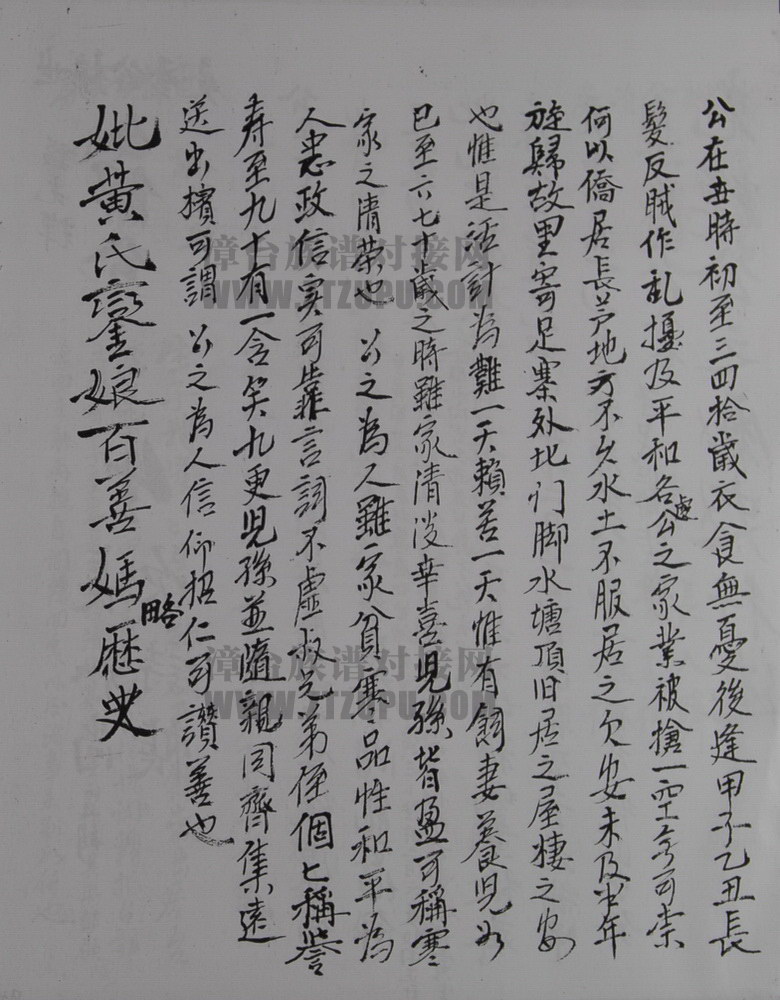 公在世時初至三四拾歲衣食無憂後逢甲子乙丑長
髮反賊作乱擾及平和各處公之家業被搶一空無可奈
何以僑居長芦地方不久水土不服居之欠安未及半年
旋歸故里寄足寨外北门脚水塘頂旧居之屋棲之安
也惟是活計為難一天賴苦一天惟有飼妻養兒女
已至六七十歲之時雖家清淡幸喜兒孫皆盈可稱寒
家之清榮也 公之為人雖家貧寒品性和平為
人忠政信実可靠言詞不虛叔兄弟侄個匕稱誉
寿至九十有一含笑九更兒孫並隨親同齊集遠
送出擯可謂 公之為人信仰招仁可讃善也
妣黃氏鑾娘百善媽略歷史
漳台族谱对接网
WWW.ZTZUPU.COM
漳台族谱对接网
WWW.ZTZUPU.COM